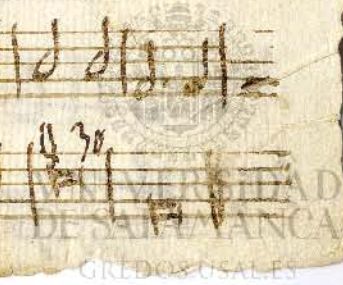 30
VNIVERSIDAD
DE SALAMANCA
GREDOS.USAL.ES